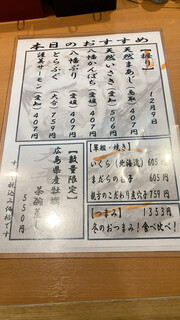 本日のおすすめ
12月9日
【握り】
天然まあじ(鳥取) 407円
天然いさき(愛知) 407円
八幡かんぱち(愛媛) 407円
八幡ぶり(愛媛) 407円
とらふぐ(大分) 759円
護美サーモン(愛知) 407円
【軍艦・焼き】
いくら(北海道) 605円
まだらの白子 605円
親方のこだわり煮穴子 759円
【つまみ】 1353円
冬のおつまみ!食べ比べ!
【数量限定】
広島県産牡蠣
茶碗蒸し
550円